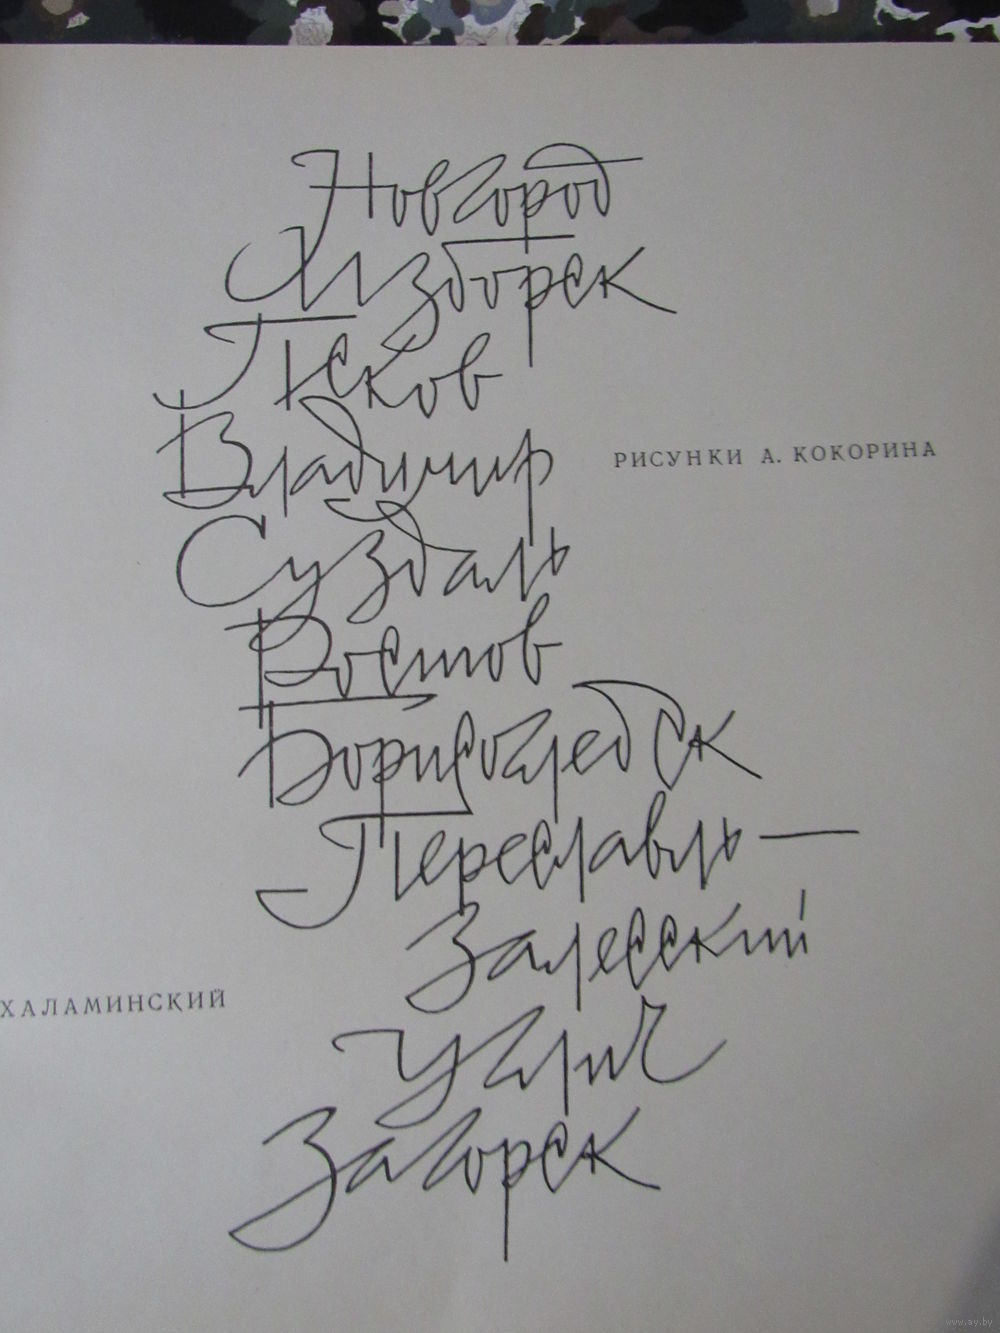 Новгород
Изборск
Псков
Владимир
РИСУНКИ А. КОКОРИНА
Суздаль
Ростов
Борисоглебск
Переславль —
Залесский
ХАЛАМИНСКИЙ
Углич
Загорск
www.ay.by